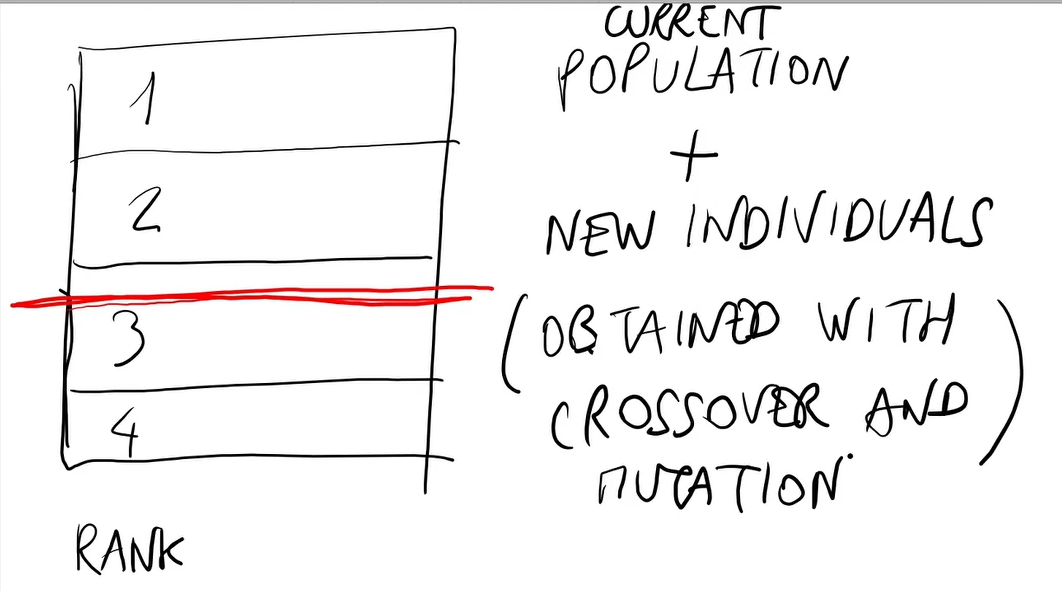 1
2
3
4
RANK
CURRENT
POPULATION
+
NEW INDIVIDUALS
(OBTAINED WITH
CROSSOVER AND
MUTATION)